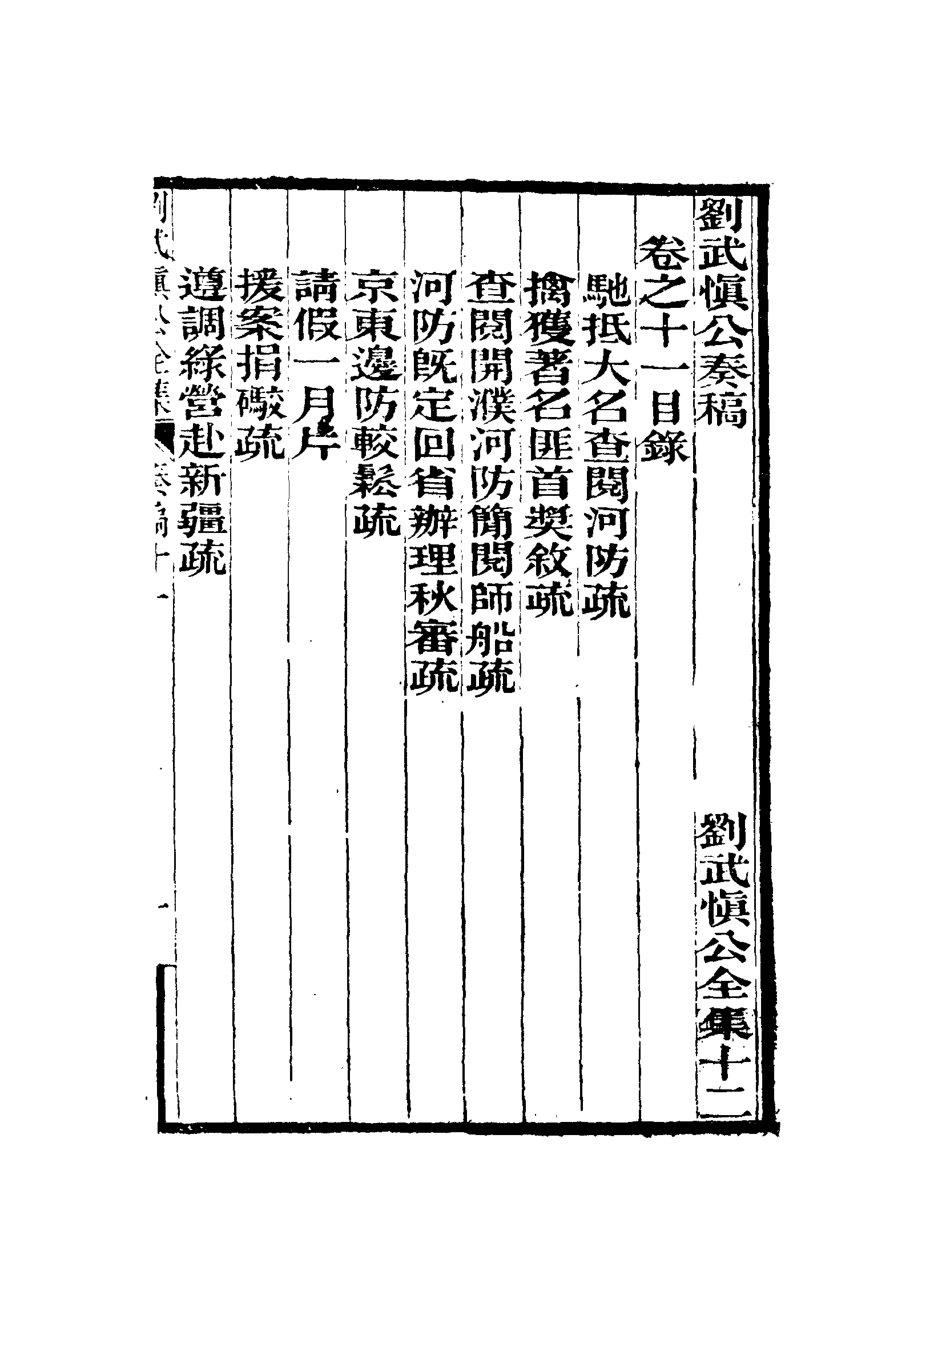 劉武愼公奏稿　劉武愼公全集十二
卷之十一目錄
馳抵大名查閱河防疏
擒獲著名匪首奬敘疏
查閱開濮河防簡閱師船疏
河防旣定回省辦理秋審疏
京東邊防較鬆疏
請假一月片
援案捐礮疏
遵調綠營赴新疆疏
劉武愼公全集　奏稿十一　一